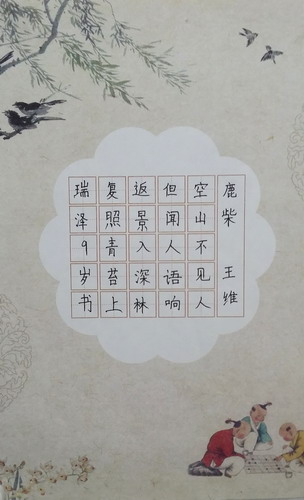 鹿柴 王维
空山不见人
但闻人语响
返景入深林
复照青苔上
瑞泽9岁书